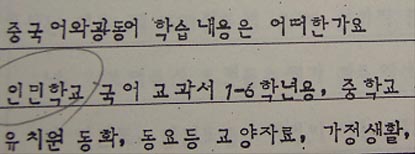 중국어와광동어 학습내용은 어떠한가요
인민학교 국어 교과서 1-6학년용, 중학교
유치원 동화, 동요등 교양자료, 가정생활,